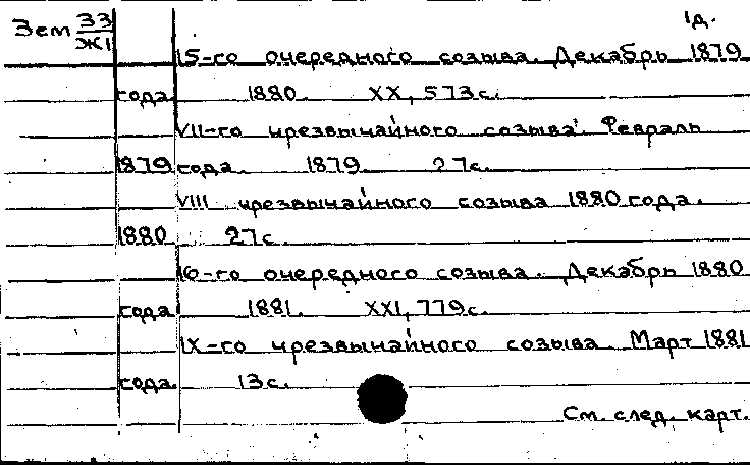 Зем 33 1д.
Ж1
15-го очередного созыва. Декабрь 1879
года. 1880. XX, 573с.
VII-го чрезвычайного созыва. Февраль
1879 года. 1879. 27с.
VIII чрезвычайного созыва 1880 года.
1880. 27с.
16-го очередного созыва. Декабрь 1880
года. 1881. XXI, 779с.
IX-го чрезвычайного созыва. Март 1881
года. 13с.
См. след. карт.